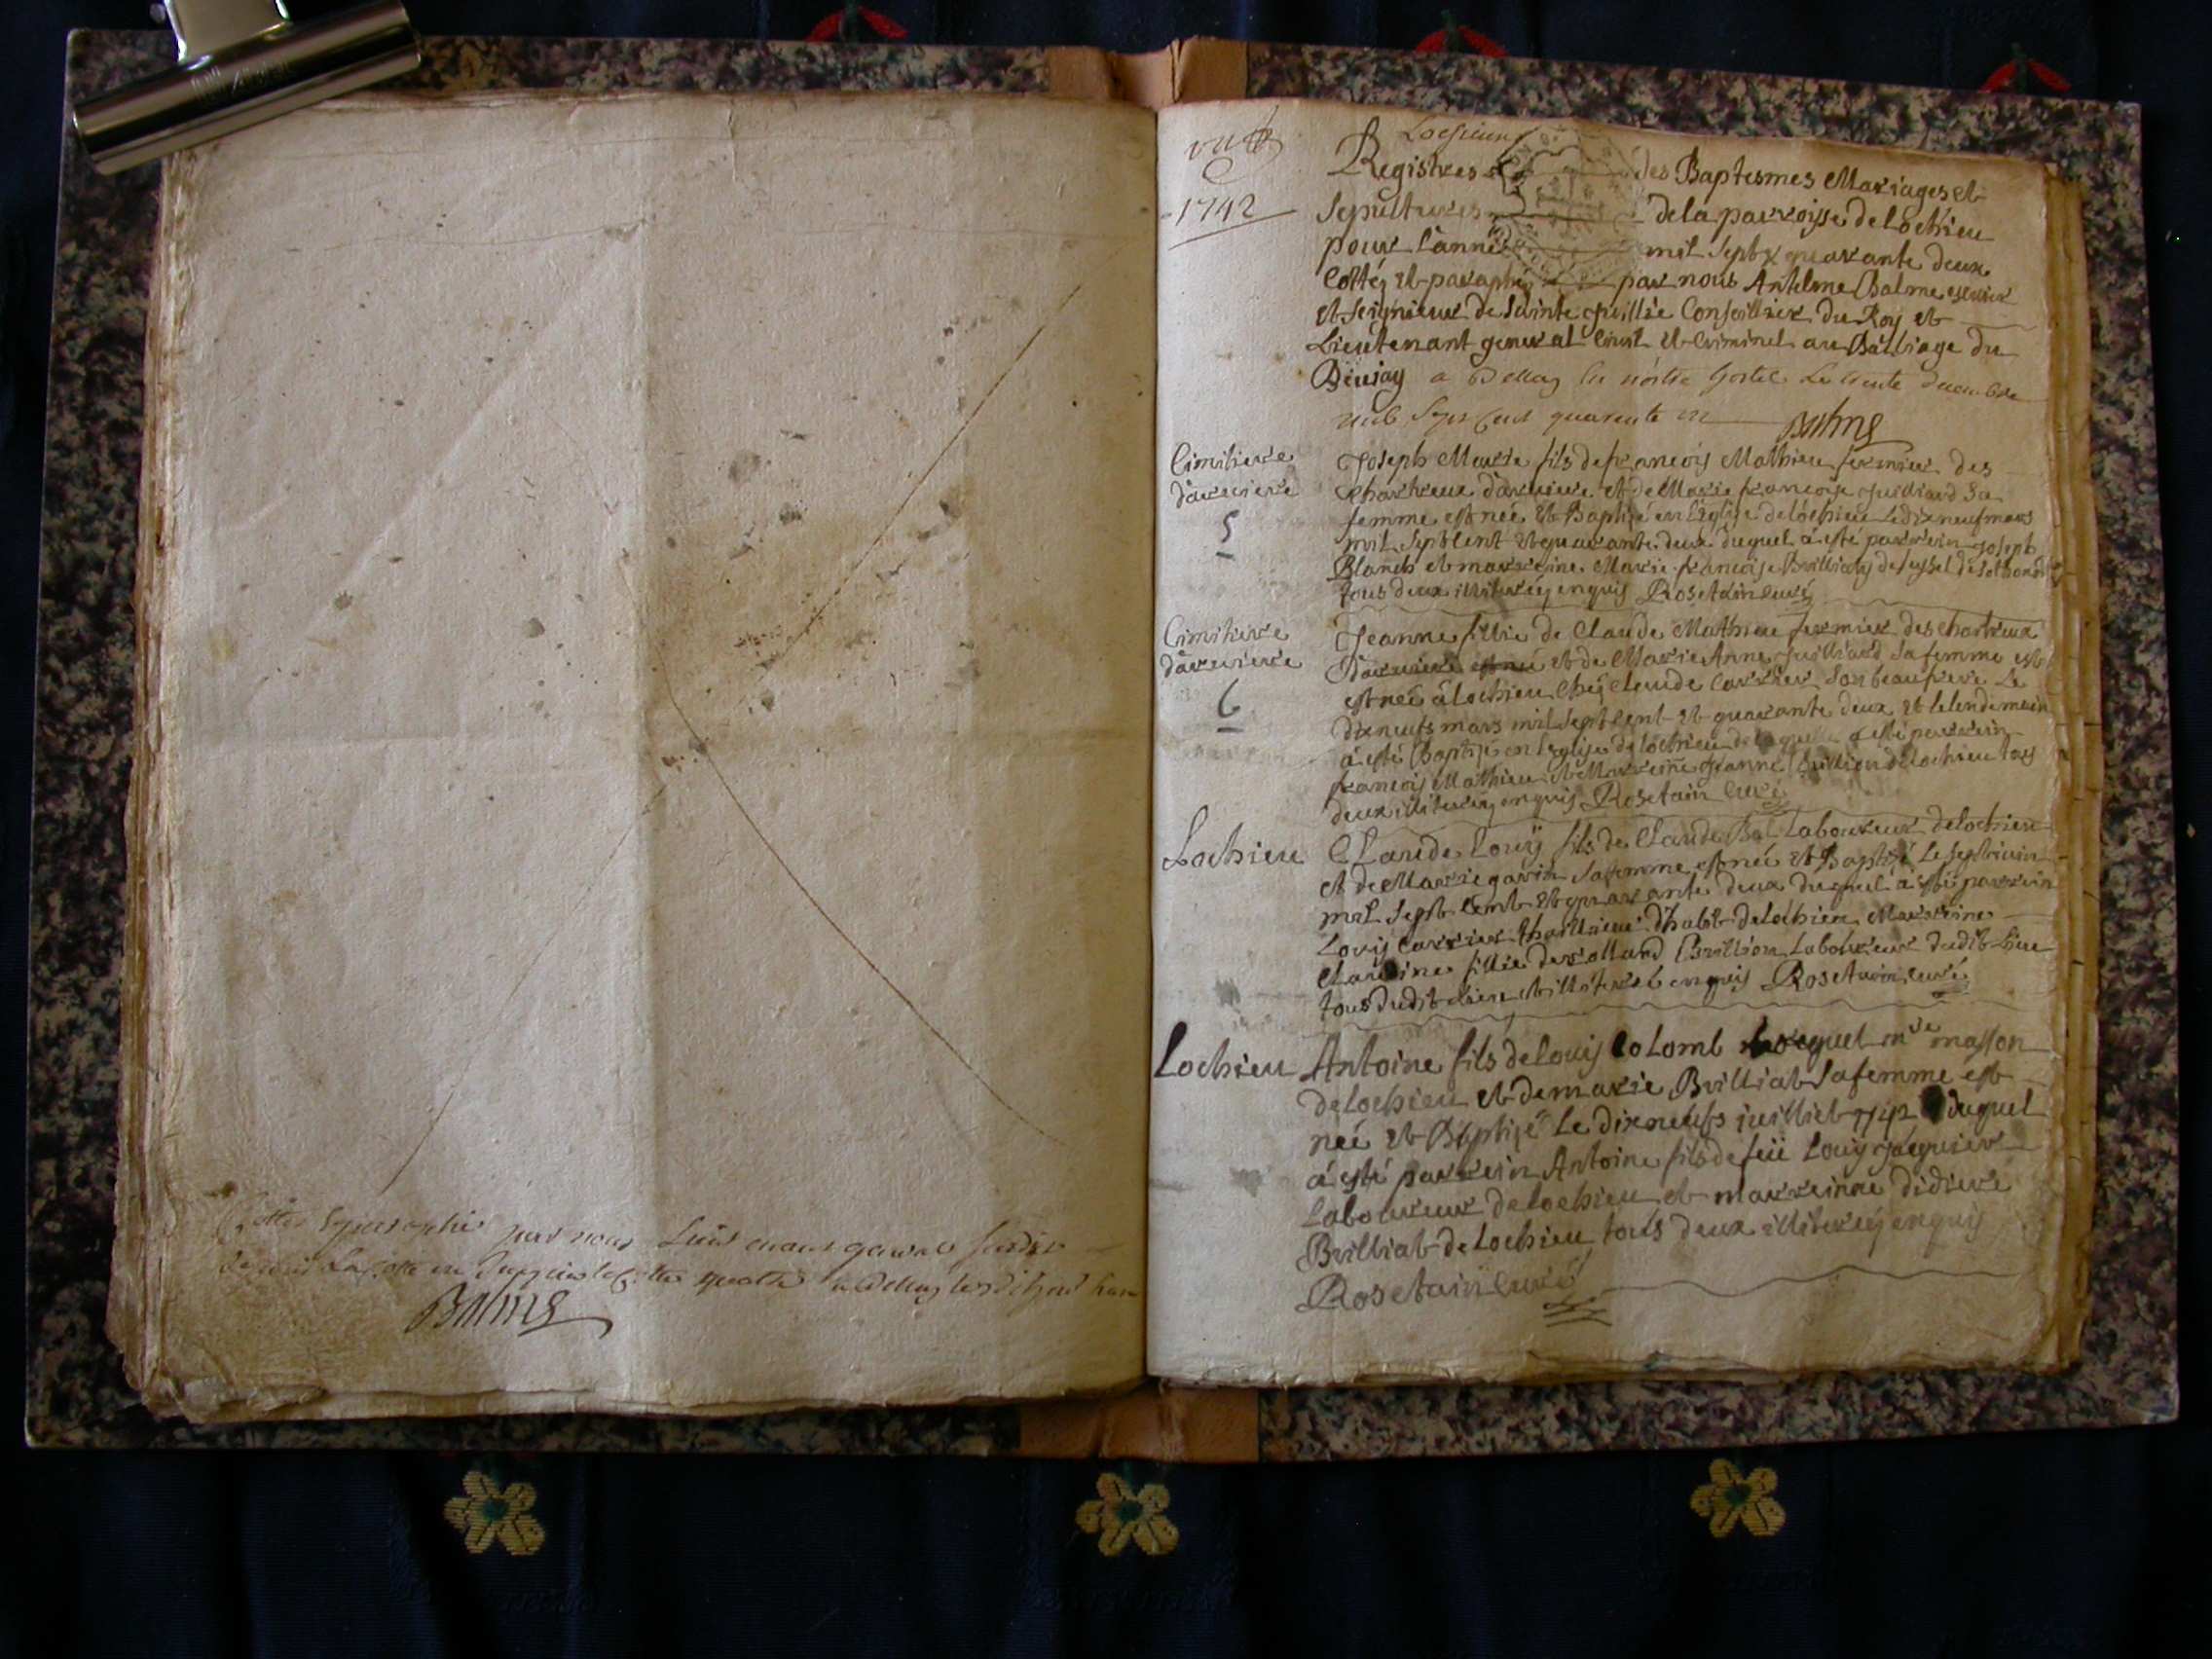 par nous
Balme
1742
Lochieu
Registres des Baptesmes Mariages et
Sepultures de la parroisse de Lochieu
pour l'année mil sept quarante deux
Cottéz et paraphé par nous Antelme Balme escuier
et seigneur de Sainte Juillie Conseillier du Roy et
Lieutenant general Civil et Criminel au Bailliage du
Beujay a Bellay en nostre hostel Le trente decembre
mil sept cent quarante un Balme
Cimitiere
d'arviere
5
Joseph Marie fils de francois Mathieu fermier des
Chartreux d'arviere et de Marie francoise Juilliard Sa
femme est neé et Baptizé en l'Eglise de lochieu Le dix neuf mars
mil Sept Cent et quarante deux duquel a esté parrein Joseph
Blanch et marreine Marie francoise Brilliat de Seyssel
tous deux illiteréz enquis Rosetain curé
Cimitiere
d'arviere
6
Jeanne fillie de Claude Mathieu fermier des chartreux
D'arviere est neé et de Marie Anne Juilliard Sa femme est
est neé à Lochieu chéz Claude Carrier Son beaufrere Le
dix neufs mars mil Sept Cent et quarante deux et le lendemain
a esté Baptizé en l'eglise de lochieu de laquelle a esté parrein
francois Mathieu et Marreine Jeanne Brillion de Lochieu tous
deux illiteréz enquis Rosetain curé
Lochieu
Claude Louÿ fils de Claude Bal Laboureur de lochieu
et de Marie gavin Sa femme est neé et Baptizé Le Sept
mil Sept Cent et quarante deux duquel à esté parrein
Louÿ Carrier thaillieur d'habit de lochieu Marreine
Claudine fillie de rolland Brillion Laboureur dudit Lieu
tous dudit Lieu et illiteret enquis Rosetain curé
Lochieu
Antoine fils de Louis Colomb mre masson
de Lochieu et de marie Brilliat Sa femme est
neé et Baptizé Le dix neufs juilliet 1742 duquel
à esté parrein Antoine fils de feü Louÿ Jaquier
Laboureur de Lochieu et marreinne didiere
Brilliat de Lochieu tous deux illiteréz enquis
Rosetain curé